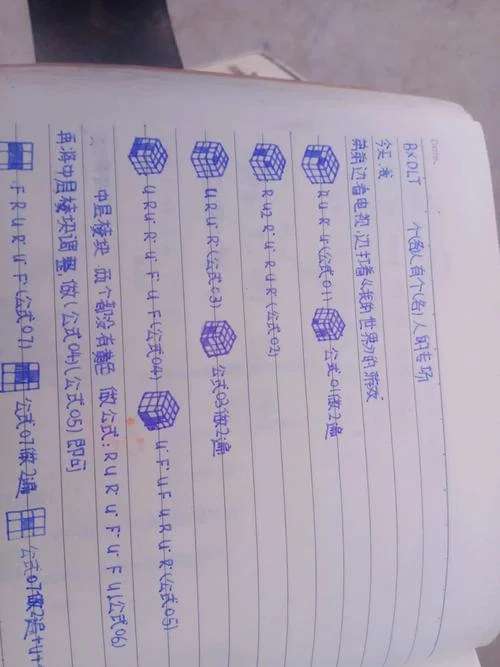 Date.
BXDLT 个各人有个(各)人的专场
今天.我
弟弟 边看电视.边拌着《我的世界》的游戏
R U R' U'(公式01) 公式01做2遍
R U2 R' U' R U R'(公式02)
U R U' R'(公式03) 公式03做2遍
U R U' R' U' F' U F(公式04) U' F' U F U R U' R'(公式05)
中层棱块 两个都没有着落 做公式: R U R' U' F' U' F U(公式06)
再将中层棱块调整 做(公式04)(公式05)即可
F R U R' U' F'(公式07) 公式07做2遍 公式07做2遍+U+